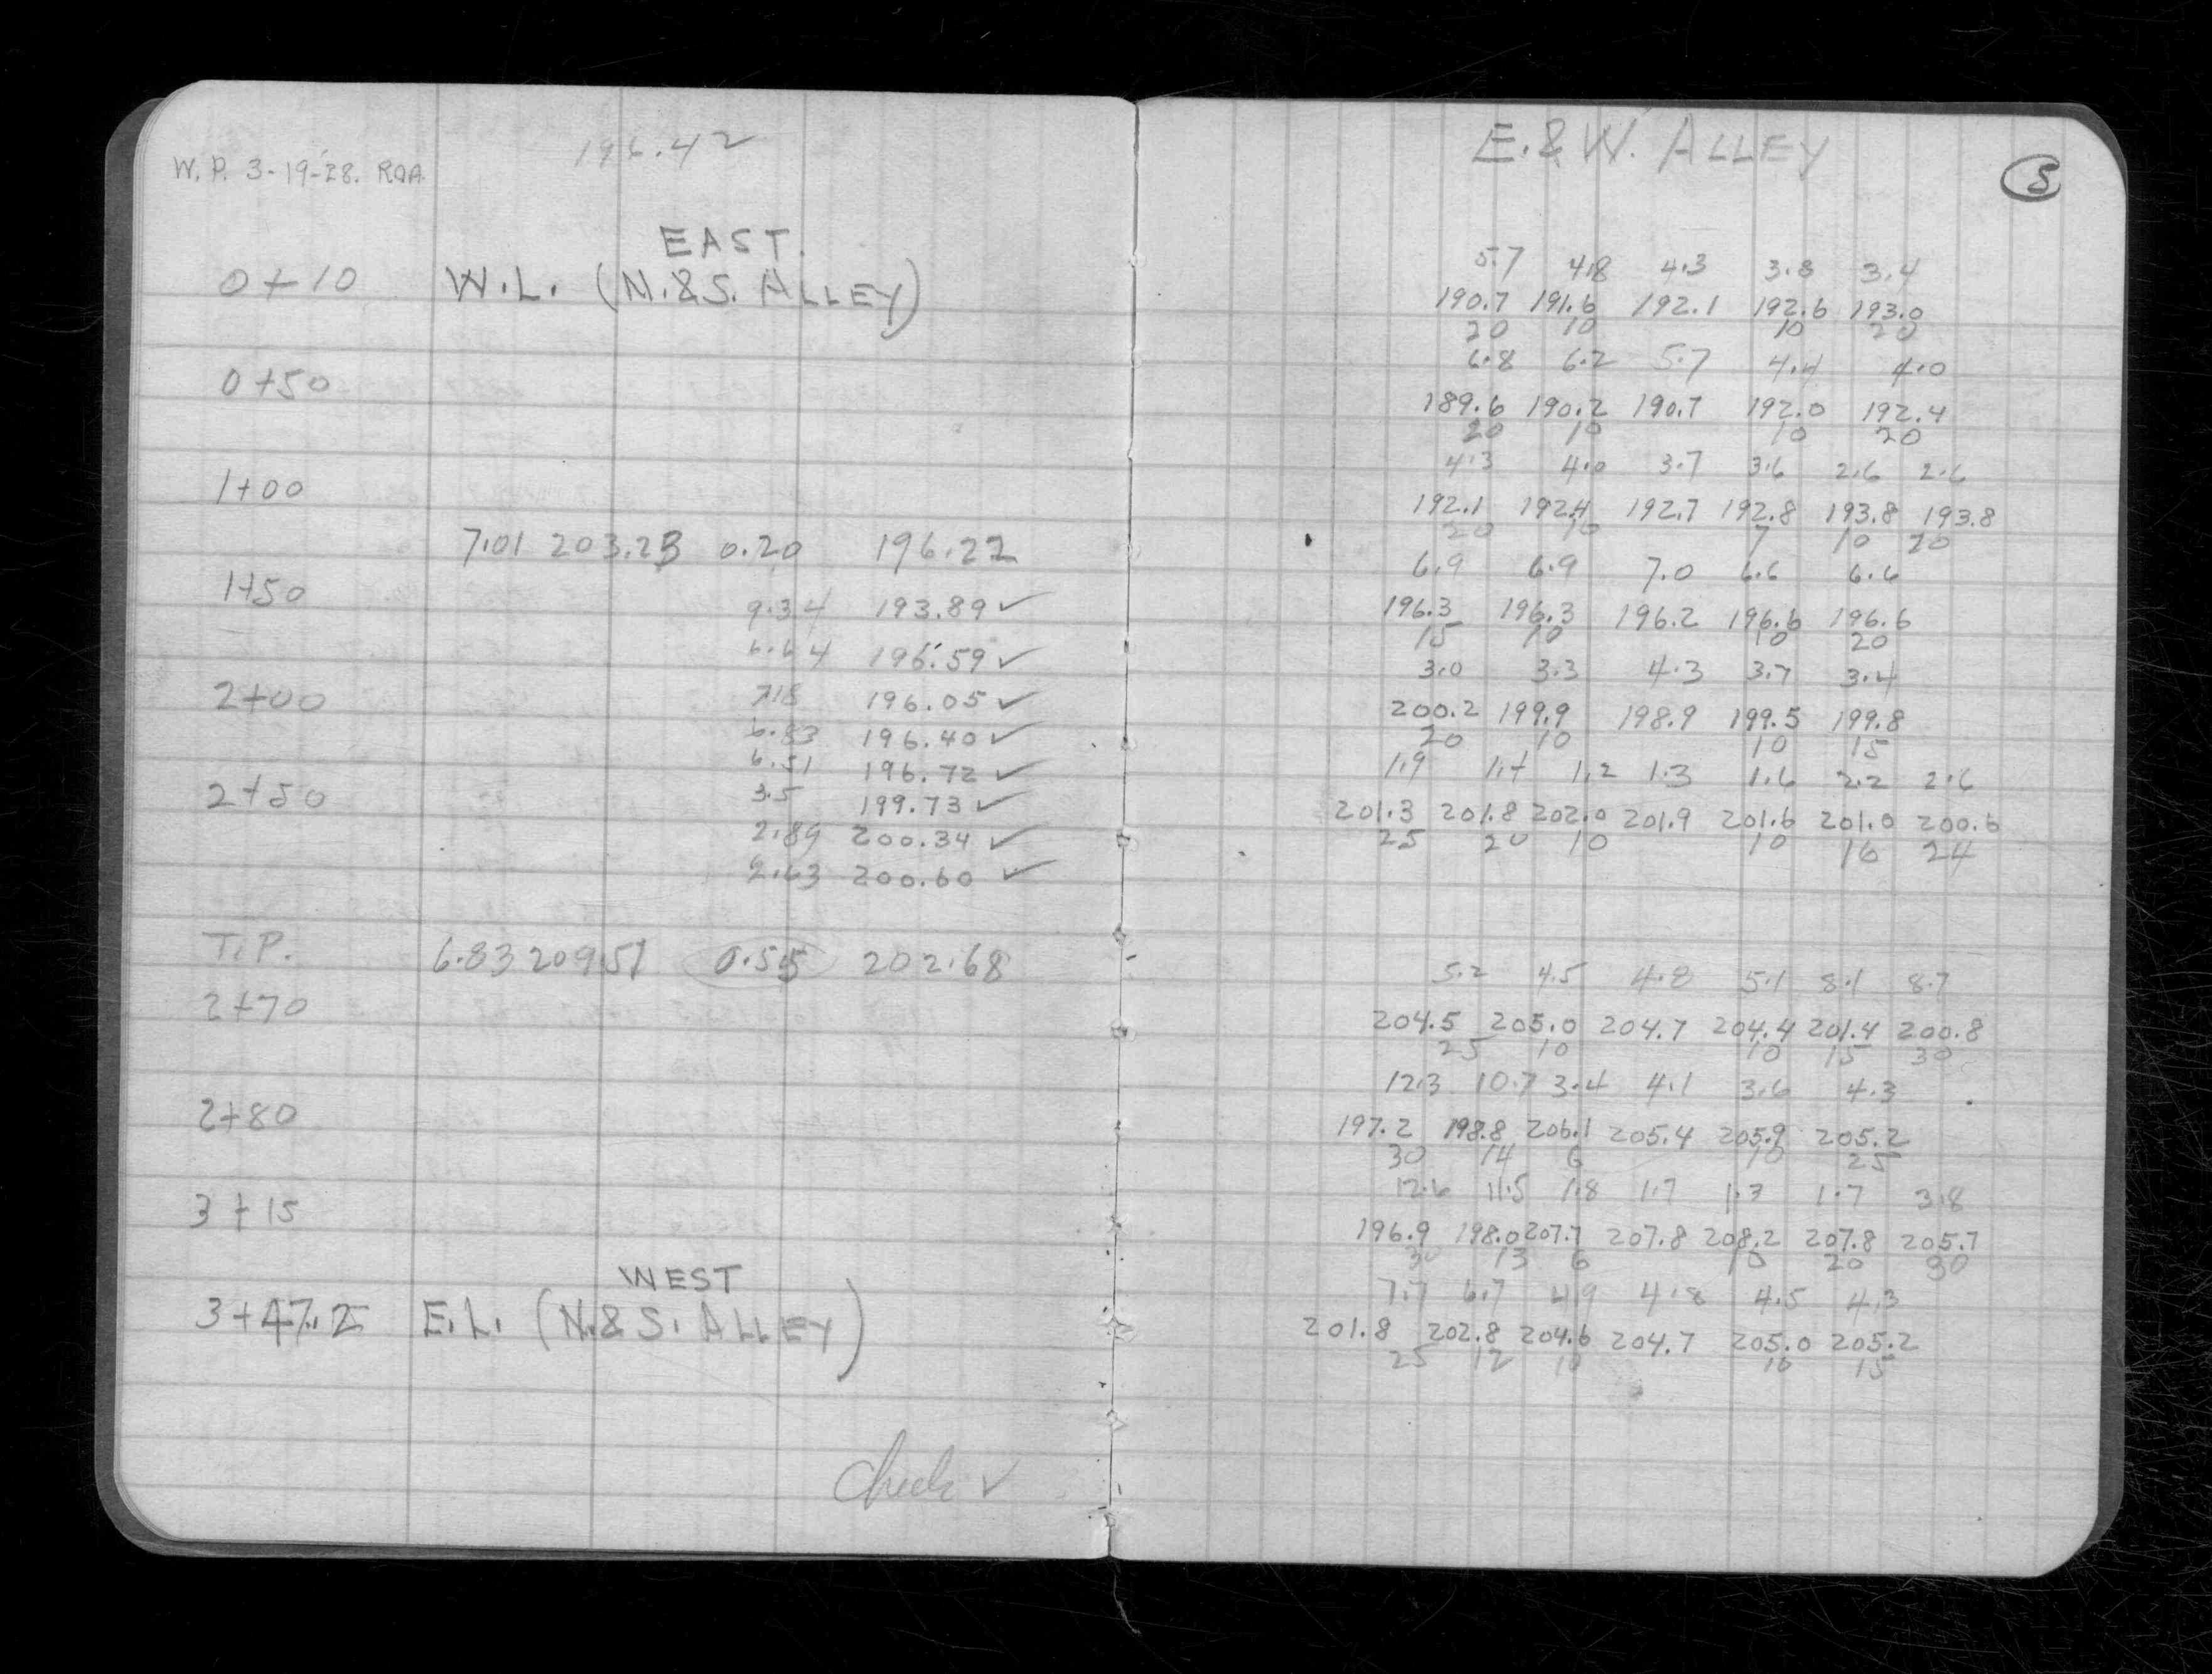 196.42 ✓
W. P. 3-19-'28. ROA.
EAST.
0+10 W.L. (N.&S. ALLEY)
0+50
1+00
7.01 203.23 0.20 196.22
1+50
9.34 193.89 ✓
6.64 196.59 ✓
2+00
7.18 196.05 ✓
6.83 196.40 ✓
6.51 196.72 ✓
2+50
3.5 199.73 ✓
2.89 200.34 ✓
2.63 200.60 ✓
T.P. 6.83 209.51 0.55 202.68
2+70
2+80
3+15
WEST
3+47.2 E.L. (N.&S. ALLEY)
Check ✓
E.&W. ALLEY
5
5.7 4.8 4.3 3.8 3.4
190.7 191.6 192.1 192.6 193.0
20 10 10 20
6.8 6.2 5.7 4.4 4.0
189.6 190.2 190.7 192.0 192.4
20 10 10 20
4.3 4.0 3.7 3.6 2.6 2.6
192.1 192.4 192.7 192.8 193.8 193.8
20 10 7 10 20
6.9 6.9 7.0 6.6 6.6
196.3 196.3 196.2 196.6 196.6
15 10 10 20
3.0 3.3 4.3 3.7 3.4
200.2 199.9 198.9 199.5 199.8
20 10 10 15
1.9 1.4 1.2 1.3 1.6 2.2 2.6
201.3 201.8 202.0 201.9 201.6 201.0 200.6
25 20 10 10 16 24
5.2 4.5 4.8 5.1 8.1 8.7
204.5 205.0 204.7 204.4 201.4 200.8
25 10 10 15 30
12.3 10.7 3.4 4.1 3.6 4.3
197.2 198.8 206.1 205.4 205.9 205.2
30 14 6 10 25
12.6 11.5 1.8 1.7 1.3 1.7 3.8
196.9 198.0 207.7 207.8 208.2 207.8 205.7
30 13 6 10 20 30
7.7 6.7 4.9 4.8 4.5 4.3
201.8 202.8 204.6 204.7 205.0 205.2
25 12 10 10 15